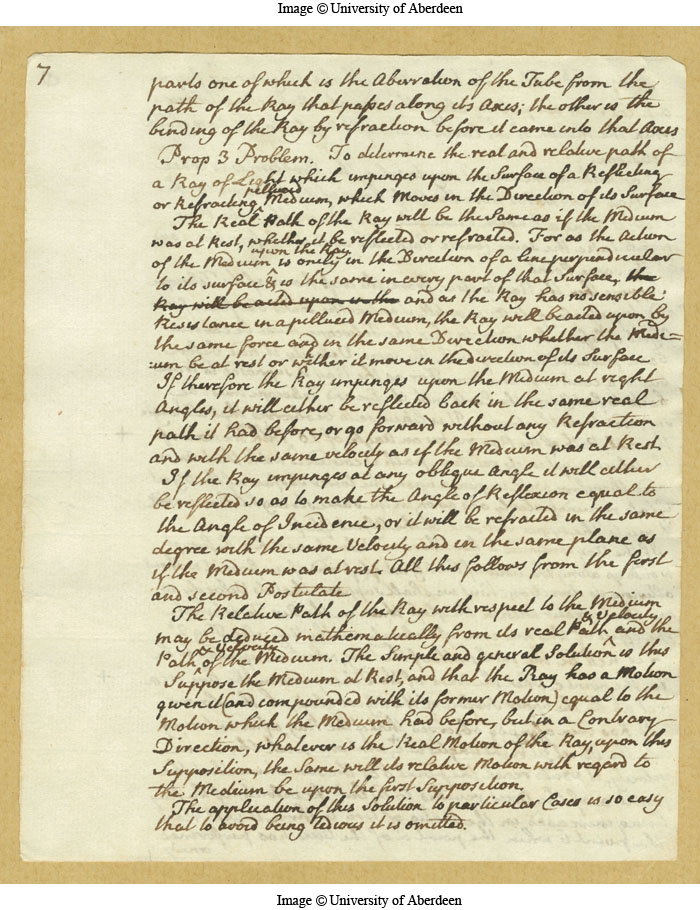 Image © University of Aberdeen
7
parts one of which is the Aberration of the Tube from the
path of the Ray that passes along its Axes; the other is the
binding of the Ray by refraction before it came into that Axes
Prop 3 Problem. To determine the real and relative path of
a Ray of Light which impinges upon the Surface of a Reflecting
pellucid
or Refracting Medium, which Moves in the Direction of its Surface
The Real Path of the Ray will be the Same as if the Medium
was at Rest, whether it be reflected or refracted. For as the Action
upon the Ray
of the Medium is onely in the Direction of a line perpendicular
to its surface & is the same in every part of that Surface, the
Ray will be acted upon in the and as the Ray has no sensible
Resistance in a pellucid Medium, the Ray will be acted upon by
the same force and in the same Direction whether the Medi=
=um be at rest or wither it move in the direction of its Surface
If therefore the Ray impinges upon the Medium at right
Angles, it will either be reflected back in the same real
path it had before, or go forward without any Refraction
and with the same velocity as if the Medium was at Rest.
If the Ray impinges at any oblique Angle it will either
be reflected so as to make the Angle of Reflexion equal to
the Angle of Incidence, or it will be refracted in the same
degree with the same Velocity and in the same plane as
if the Medium was at rest. All this follows from the first
and second Postulate
The Relative Path of the Ray with respect to the Medium
& Velocity
may be deduced mathematically from its real Path and the
& Velocity
Path of the Medium. The Simple and general Solution is this
Suppose the Medium at Rest, and that the Ray has a Motion
given it (and compounded with its former Motion) equal to the
Motion which the Medium had before, but in a Contrary
Direction, whatever is the Real Motion of the Ray, upon this
Supposition, the Same will its relative Motion with regard to
the Medium be upon the first Supposition.
The application of this Solution to particular Cases is so easy
that to avoid being tedious it is omitted.
Image © University of Aberdeen